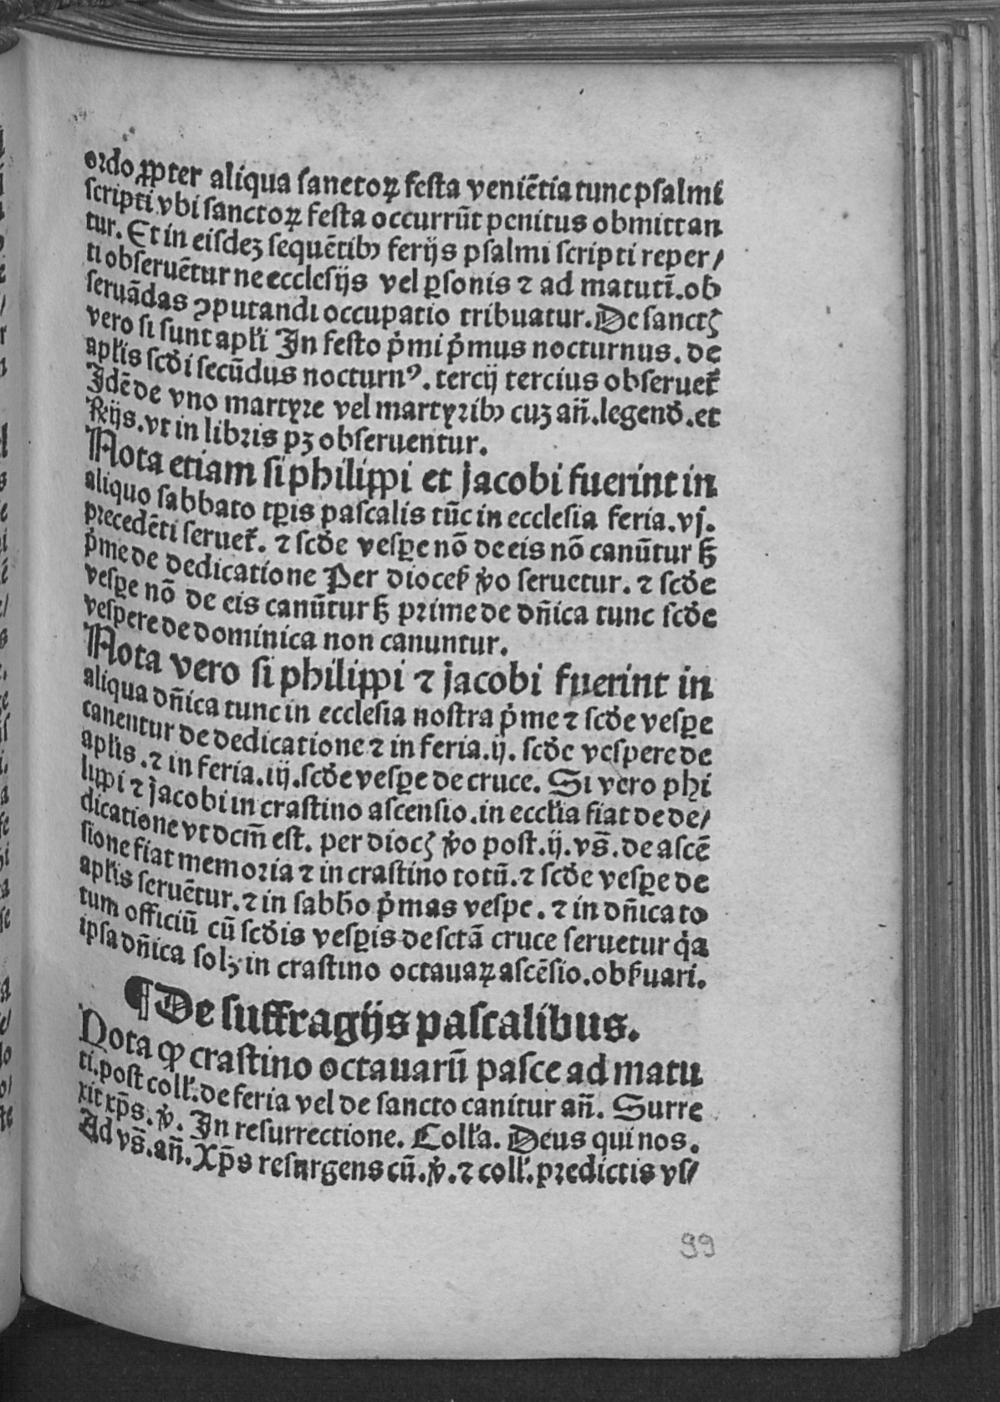 ordo ꝓpter aliqua sanctoꝝ festa veniētia tunc psalmi
scripti vbi sanctoꝝ festa occurrūt penitus obmittan
tur. Et in eisdeꝫ sequētibꝰ ferijs psalmi scripti reper/
ti obseruētur ne ecclesijs vel ꝑsonis ⁊ ad matuti̅. ob
seruādas ꝯputandi occupatio tribuatur. De sanctꝭ
vero si sunt apl̓i In festo p̓mi p̓mus nocturnus. de
apl̓is scd̓i secūdus nocturnꝰ. tercij tercius obserueť
Idē de vno martyre vel martyribꝰ cuꝫ an̄. legend̓. et
R̓ijs. vt in libris pꝫ obseruentur.
Nota etiam si philippi et Jacobi fuerint in
aliquo sabbato tꝑis pascalis tūc in ecclesia feria. vj.
precedēti serueť. ⁊ scd̓e vesꝑe nō de eis nō canūtur sꝫ
p̓me de dedicatione Per dioceẜ ꝟo seruetur. ⁊ scd̓e
vesꝑe nō de eis canūtur sꝫ prime de dn̄ica tunc scd̓e
vespere de dominica non canuntur.
Nota vero si philippi ⁊ Jacobi fuerint in
aliqua dn̄ica tunc in ecclesia nostra p̓me ⁊ scd̓e vesꝑe
canentur de dedicatione ⁊ in feria. ij. scd̓e vespere de
apl̓is. ⁊ in feria. iij. scd̓e vesꝑe de cruce. Si vero phi
lippi ⁊ Jacobi in crastino ascensio. in eccl̓ia fiat de de/
dicatione vt dcm̄ est. per diocꝭ ꝟo post. ij. vs̄. de ascē
sione fiat memoria ⁊ in crastino totū. ⁊ scd̓e vesꝑe de
apl̓is seruētur. ⁊ in sabb̓o p̓mas vespe. ⁊ in dn̄ica to
tum officiū cū scd̓is vesꝑis de sctā cruce seruetur q̓a
ipsa dn̄ica solꝫ in crastino octauaꝝ ascēsio. obẜuari.
¶ De suffragijs pascalibus.
Nota ꝙ crastino octauarū pasce ad matu
ti. post coll̓. de feria vel de sancto canitur an̄. Surre
xit xp̄s. ꝟ. In resurrectione. Coll̓a. Deus qui nos.
Ad vs̄. an̄. Xp̄s resurgens cū. ꝟ. ⁊ coll̓. predictis vs/
99